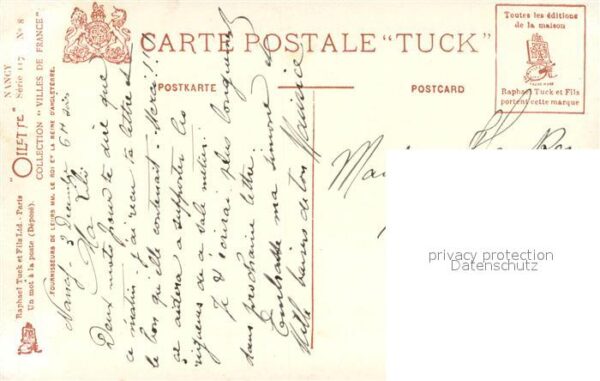 "OILETTE" NANCY
Série 117 N° 8
COLLECTION "VILLES DE FRANCE"
FOURNISSEURS DE LEURS MM. LE ROI ET LA REINE D'ANGLETERRE.
Raphael Tuck et Fils Ltd. - Paris
Un mot à la poste (Déposé).
CARTE POSTALE "TUCK"
POSTKARTE
POSTCARD
Toutes les éditions
de la maison
TRADE MARK
Raphael Tuck et Fils
portent cette marque
Nancy - 3 Décembre 6H soir
Ma
Deux mots pour te dire que
ce matin j'ai reçu ta lettre et
le bon qu'elle contenait. Merci!!!
ça aidera a supporter les
rigueurs de ce sale métier.
Je t'écrirai plus longuement
dans prochaine lettre
Embrasse ma Simone et
baisers de ton Maurice
privacy protection
Datenschutz